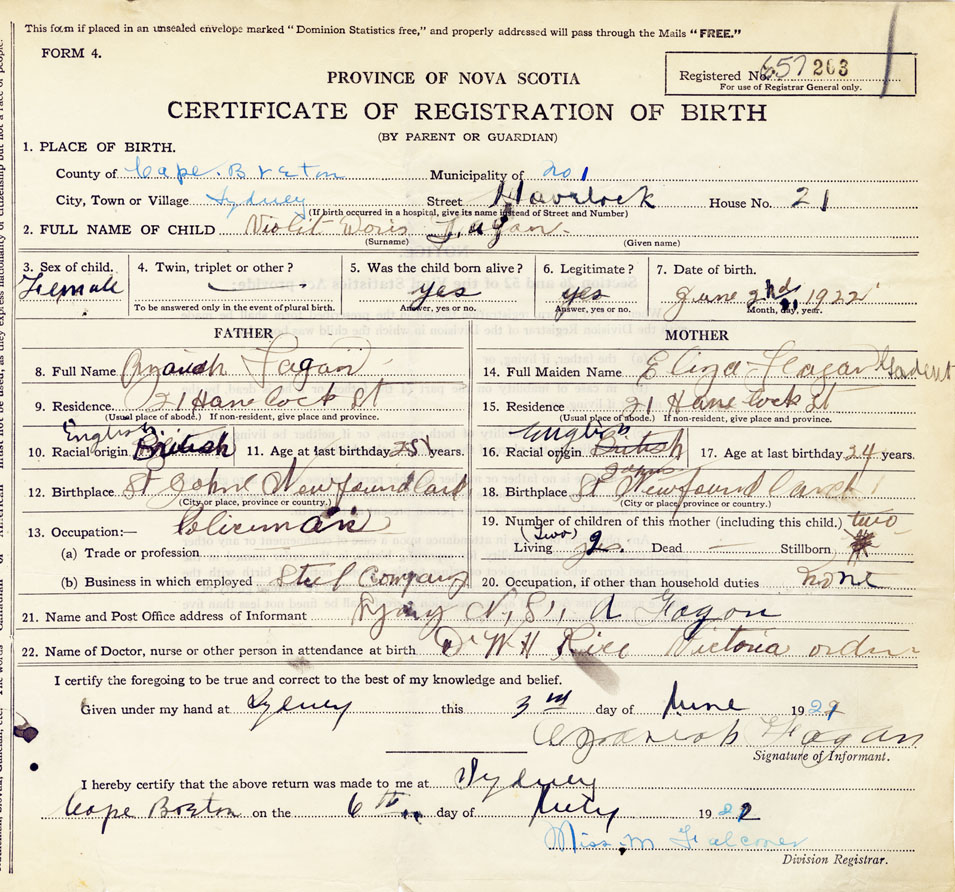 This form if placed in an unsealed envelope marked "Dominion Statistics free," and properly addressed will pass through the Mails "FREE."
FORM 4.
PROVINCE OF NOVA SCOTIA
Registered No. 657 203
For use of Registrar General only.
CERTIFICATE OF REGISTRATION OF BIRTH
(BY PARENT OR GUARDIAN)
1. PLACE OF BIRTH.
County of Cape. Breton Municipality of no 1
City, Town or Village Sydney Street Havelock House No. 21
(If birth occurred in a hospital, give its name instead of Street and Number)
2. FULL NAME OF CHILD Violet Doris Fagan.
(Surname) (Given name)
3. Sex of child. 4. Twin, triplet or other? 5. Was the child born alive? 6. Legitimate? 7. Date of birth.
Female yes yes June 2nd 1922
To be answered only in the event of plural birth. Answer, yes or no. Answer, yes or no. Month, day, year.
FATHER MOTHER
8. Full Name Fagan 14. Full Maiden Name Eliza Fagan
9. Residence. 21 Hanelock St 15. Residence 21 Hanelock St
(Usual place of abode.) If non-resident, give place and province. (Usual place of abode.) If non-resident, give place and province.
English English
10. Racial origin. British 11. Age at last birthday years. 16. Racial origin. British 17. Age at last birthday 24 years.
12. Birthplace St John Newfoundland 18. Birthplace St Johns Newfoundland
(City or place, province or country.) (City or place, province or country.)
13. Occupation:— 19. Number of children of this mother (including this child.) two
(a) Trade or profession (Two) Living 2. Dead — Stillborn
(b) Business in which employed Steel Company 20. Occupation, if other than household duties none
21. Name and Post Office address of Informant N.S. A Fagon
22. Name of Doctor, nurse or other person in attendance at birth Dr W H Rice Victoria order
I certify the foregoing to be true and correct to the best of my knowledge and belief.
Given under my hand at Sydney this 3rd day of June 1922
Fagan
Signature of Informant.
I hereby certify that the above return was made to me at Sydney
Cape Breton on the 6th day of 1922
Miss. M Falconer
Division Registrar.